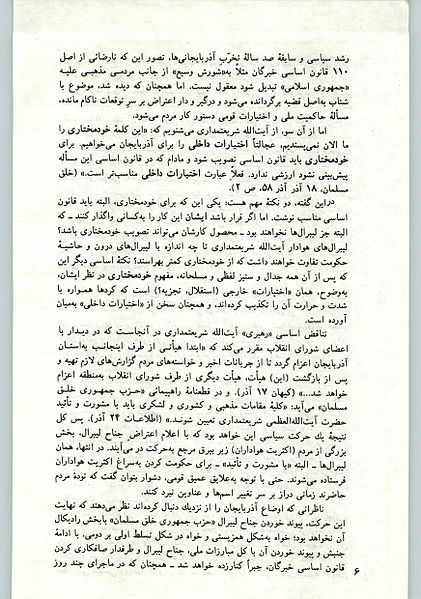 رشد سیاسی و سابقهٔ صد سالهٔ تحزّبِ آذربایجانی‌ها، تصور این که نارضائی از اصل
۱۱۰ قانون اساسی خبرگان مثلاً به«شورش وسیع» از جانب مردمی مذهبی علیه
«جمهوری اسلامی» تبدیل شود معقول نیست. اما همچنان که دیده شد، موضوع با
شتاب به‌اصل قضیه برگردانده می‌شود و درگیر و دار اعتراض بر سرِ توقعات ناکام مانده،
مسألهٔ حاکمیت ملی و اختیارات قومی دستور کار مردم می‌شود.
اما از آن سو، از آیت‌الله شریعتمداری می‌شنویم که: «این کلمهٔ خودمختاری را
ما الان نمی‌پسندیم، عجالتاً اختیارات داخلی را برای آذربایجان می‌خواهیم. برای
خودمختاری باید قانون اساسی تصویب شود و مادام که در قانون اساسی این مسأله
پیش‌بینی نشود ارزشی ندارد. فعلاً عبارت اختیارات داخلی مناسب‌تر است.» (خلق
مسلمان، ۱۸ آذر ۵۸، ص ۲).
دراین گفته، دو نکتهٔ مهم هست: یکی این که برای خودمختاری، البته باید قانون
اساسی مناسب نوشت. اما اگر قرار باشد ایشان این کار را به‌کسانی واگذار کنند ـ که
البته جز لیبرال‌ها نخواهند بود ـ محصول کارشان می‌تواند تصویب خودمختاری باشد؟
لیبرال‌های هوادار آیت‌الله شریعتمداری تا چه اندازه با لیبرال‌های درون و حاشیهٔ
حکومت تفاوت خواهند داشت که از خودمختاری کمتر بهراسند؟ نکتهٔ اساسی دیگر این
که پس از آن همه جدال و ستیز لفظی و مسلحانه، مفهوم خودمختاری در نظر ایشان،
به‌وضوح، همان «اختیارات» خارجی (استقلال، تجزیه؟) است که کردها همواره با
شدت و حرارت آن را تکذیب کرده‌اند، و همچنان سخن از «اختیارات داخلی» به‌میان
آورده است.
تناقض اساسی «رهبری» آیت‌الله شریعتمداری در آنجاست که در دیدار با
اعضای شورای انقلاب مقرر می‌کند که «ابتدا هیأتی از طرف اینجانب به‌استان
آذربایجان اعزام گردد تا از جریانات اخیر و خواسته‌های مردم گزارش‌های لازم تهیه و
پس از بازگشت (این) هیأت، هیأت دیگری از طرف شورای انقلاب به‌منطقه اعزام
خواهد شد...» (کیهان ۱۷ آذر). و در قطعنامهٔ راهپیمائی «حزب جمهوری خلق
مسلمان» می‌آید: «کلیهٔ مقامات مذهبی و کشوری و لشکری باید با مشورت و تأئید
حضرت آیت‌الله‌العظمی شریعتمداری تعیین شوند.» (اطلاعات ۲۴ آذر). پس کل
نتیجهٔ یك حرکت سیاسی این خواهد بود که با اعلام اعتراض جناح لیبرال، بخش
بزرگی از مردم (اکثریت هواداران) زیر بیرق مرجع به‌حرکت در می‌آیند. در انتها، همان
لیبرال‌ها ـ البته «با مشورت و تأئید» ـ برای حکومت کردن به‌سراغ اکثریت هواداران
فرستاده می‌شوند. حتی با توجه به‌علایق عمیق قومی، دشوار بتوان گفت که تودهٔ مردم
حاضرند زمانی دراز بر سر تغییر اسم‌ها و عناوین نبرد کنند.
ناظرانی که اوضاع آذربایجان را از نزدیك دنبال کرده‌اند نظر می‌دهند که نهایت
این حرکت، پیوند خوردن جناح لیبرال «حزب جمهوری خلق مسلمان» بابخش رادیکال
آن نخواهد بود؛ خواه به‌شکل همزیستی و خواه در شکل تسلط اولی بر دومی. با ادامهٔ
جنبش و پیوند خوردن آن با کل مبارزات ملی، جناح لیبرال و طرفدار صافکاری کردن
قانون اساسی خبرگان، جبراً کنارزده خواهد شد ـ همچنان که در ماجرای چند روز
۶